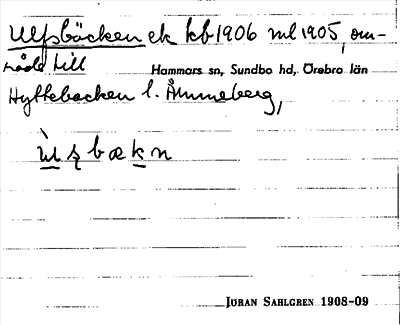 Ulfsbäcken ek kb 1906 ml 1905, om-
råde till
Hammars sn, Sundbo hd, Örebro län
Hyttebacken l. Åmmeberg,
bækn
JÖRAN SAHLGREN 1908-09